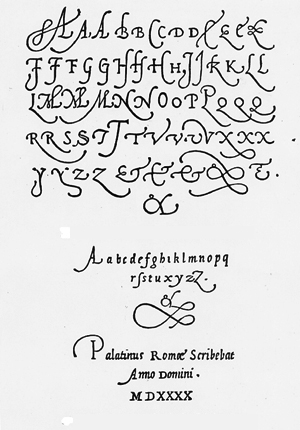 A A A B B C C D D E E E E
F F F G G H H H H I J K K L L
L M M M N N O O P P Q Q Q
R R S S S T T T V V V V X X X
Y Y Z Z & & & & & &.
&
A a b c d e f g h i k l m n o p q
r ſ s t u x y z Z.
&
Palatinus Romæ Scribebat
Anno Domini.
M D X X X X